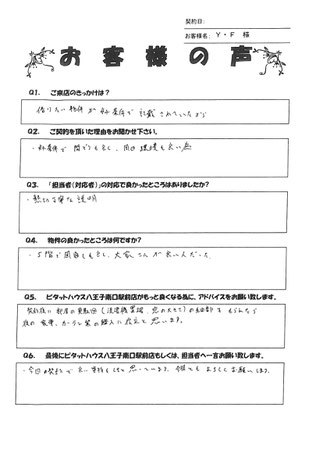 契約日:
お客様名: Y・F 様
お客様の声
Q1. ご来店のきっかけは？
借りたい物件が好条件で記載されていたから
Q2. ご契約を頂いた理由をお聞かせ下さい。
・好条件で間どりも良く、周囲環境も良い為
Q3. 「担当者(対応者)」の対応で良かったところはありましたか？
・親切丁寧な説明
Q4. 物件の良かったところは何ですか？
・5階で間取も良く、大家さんが良い人だった。
Q5. ピタットハウス八王子南口駅前店がもっと良くなる為に、アドバイスをお願い致します。
契約後に部屋の見取図(
の
カーテン等の購入に
と思います。
Q6. 最後にピタットハウス八王子南口駅前店もしくは、担当者へ一言お願い致します。
・今回の契約で良い
と思っています。
よろしくお願いします。